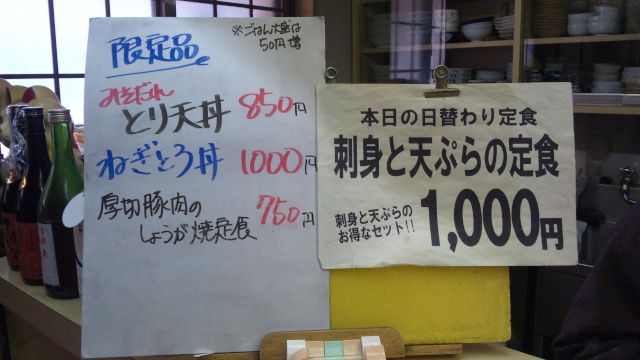 限定品
※ごはん大盛は
50円増
みそだれ
とり天丼 850円
ねぎとろ丼 1000円
厚切豚肉の
しょうが焼定食 750円
本日の日替わり定食
刺身と天ぷらの定食
刺身と天ぷらの
お得なセット!!
1,000円